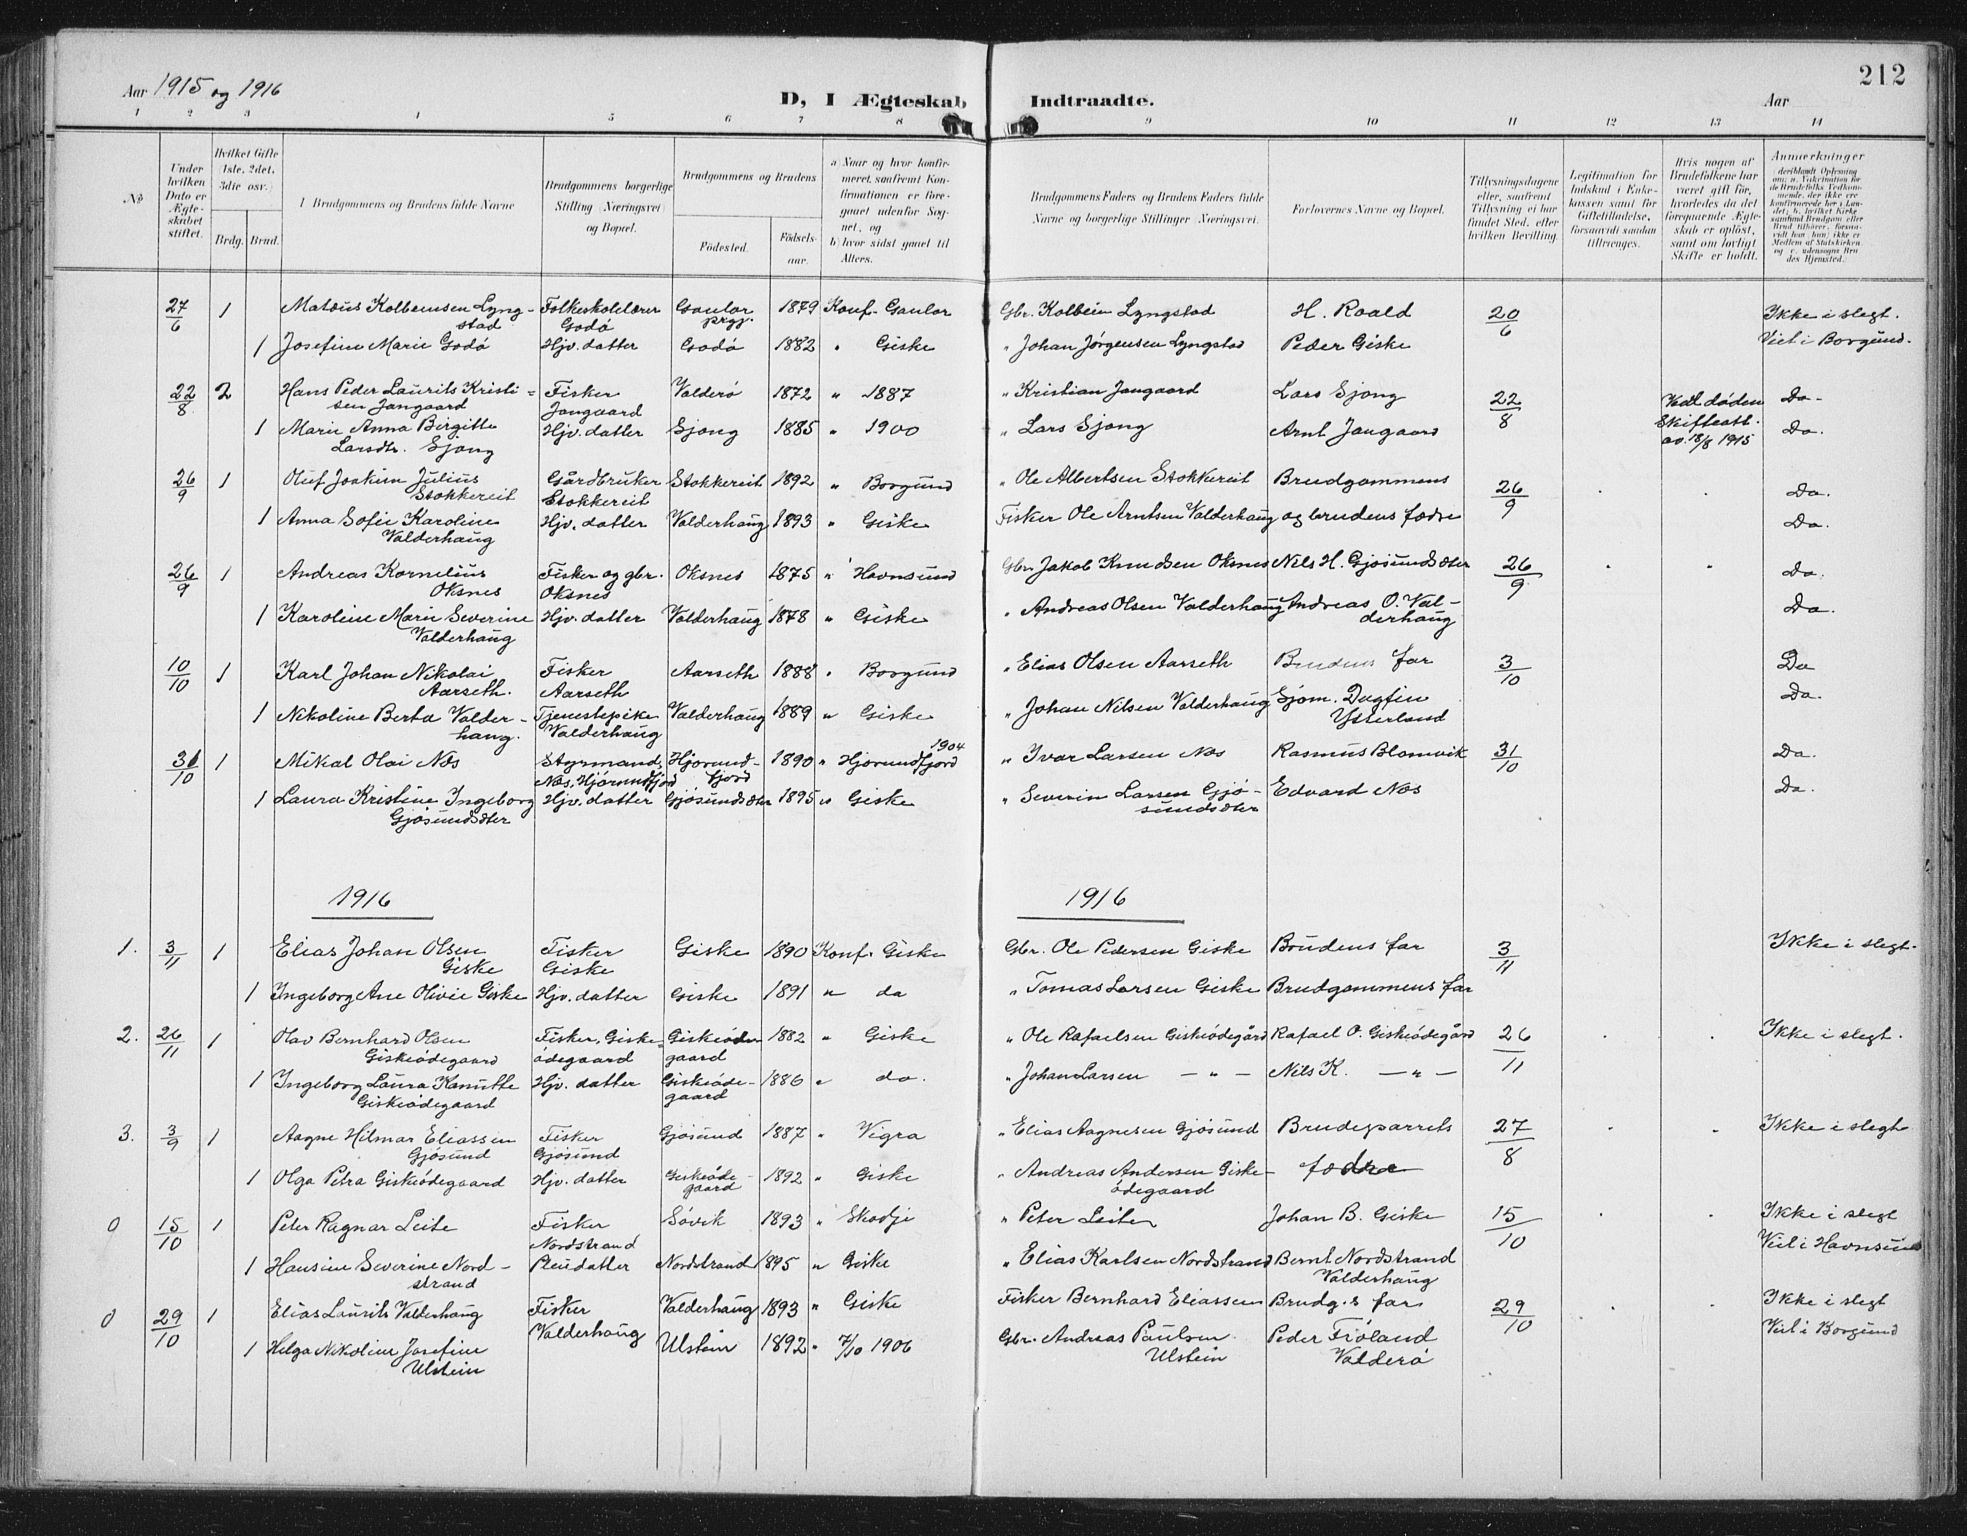 212
Aar 1915 og 1916
D, I Ægteskab Indtraadte.
Aar
1 2 3 4 5 6 7 8 9 10 11 12 13 14
No
Under hvilken Dato er Ægteskabet stiftet.
Hvilket Gifte 1ste, 2det, 3die osv.)
Brdg. Brud.
1 Brudgommens og Brudens fulde Navne
Brudgommens borgerlige Stilling (Næringsvei) og Bopæl.
Brudgommens og Brudens
Fødested.
Fødselsaar.
a Naar og hvor konfirmeret, samfremt Konfirmationen er foregaaet udenfor Sognet, og
b) hvor sidst gaaet til Alters.
Brudgommens Faders og Brudens Faders fulde Navne og borgerlige Stillinger (Næringsvei.
Forlovernes Navne og Bopæl.
Tillysningsdagene eller, samfremt Tillysning ei har fundet Sted, efter hvilken Bevilling.
Legitimation for Indskud i Enkekassen samt for Giftetilladelse, forsaavidt saadan tiltrænges.
Hvis nogen af Brudefolkene har været gift før, hvorledes da det foregaaende Ægteskab er opløst, samt om lovligt Skifte er holdt.
Anmærkninger
27/6 1 Matæus Kolbeinsen Lyng- Folkeskolelærer Gaular 1879 Konf. Gaular Gbr. Kolbein Lyngstad H. Roald 20/6 Ikke i slegt.
stad Godø prgj.
1 Josefine Marie Godø Hjv. datter Godø 1882 " Giske " Johan Jørgensen Lyngstad Peder Giske Viet i Borgund.
22/8 2 Hans Peder Laurits Kristi= Fisker Valderø 1872 " 1887 " Kristian Jangaard Lars Sjong 22/8 Ved døden Do-
sen Jangaard Jangaard
1 Marie Anna Birgitte Hjv. datter Sjong 1885 " 1900 " Lars Sjong Arnt Jangaard Skifteatt. Do.
Larsdtr. Sjong av 18/8 1915
26/9 1 Oluf Joakim Julius Gårdbruker Stokkereit 1892 " Borgund " Ole Albertsen Stokkereit Brudgommens 26/9 Do.
Stokkereit Stokkereit
1 Anna Sofie Karoline Hjv. datter Valderhaug 1893 " Giske Fisker Ole Arntsen Valderhaug og brudens fædre Do.
Valderhaug
26/9 1 Andreas Kornelius Fisker og gbr. Oksnes 1875 " Havnsund Gbr. Jakob Knudsen Oksnes Nils H. Gjøsundsæter 26/9 Do.
Oksnes Oksnes
1 Karoline Marie Severine Hjv. datter Valderhaug 1878 " Giske " Andreas Olsen Valderhaug Andreas O. Val- Do.
Valderhaug derhaug
10/10 1 Karl Johan Nikolai Fisker Aarseth 1888 " Borgund " Elias Olsen Aarseth Brudens far 3/10 Do
Aarseth. Aarseth
1 Nikoline Berta Valder- Tjenestepike Valderhaug 1889 " Giske " Johan Nilsen Valderhaug Sjøm. Dagfin Do.
haug. Valderhaug Ytterland
31/10 1 Mikal Olai Næs Styrmand, Hjørund- 1890 " Hjørundfjord 1904 " Ivar Larsen Næs Rasmus Blomvik 31/10 Do.
Næs, Hjørundfjord fjord
1 Laura Kristine Ingeborg Hjv. datter Gjøsundsæter 1895 " Giske " Severin Larsen Gjø- Edvard Næs Do.
Gjøsundsæter sundsæter
1916 1916
1. 3/11 1 Elias Johan Olsen Fisker Giske 1890 Konf. Giske Gbr. Ole Pedersen Giske Brudens far 3/11 Ikke i slegt.
Giske Giske
1 Ingeborg Ane Olivie Giske Hjv. datter Giske 1891 " do " Tomas Larsen Giske Brudgommens far
2. 26/11 1 Olav Bernhard Olsen Fisker, Giske= Giskeøde= 1882 " Giske " Ole Rafaelsen Giskeødegård Rafael O. Giskeødegård 26/11 Ikke i slegt.
Giskeødegaard ødegaard gaard
1 Ingeborg Laura Kanutte Hjv. datter Giskeøde- 1886 " do. " Johan Larsen — " — Nils K. — " —
Giskeødegaard gaard
3. 3/9 1 Aagne Hilmar Eliassen Fisker Gjøsund 1887 " Vigra " Elias Aagnesen Gjøsund Brudeparrets 27/8 Ikke i slegt
Gjøsund Gjøsund
1 Olga Petra Giskeødegaard Hjv. datter Giskeøde- 1892 " Giske " Andreas Andersen Giske- fædre
gaard ødegaard
0 15/10 1 Peter Ragnar Leite Fisker Søvik 1893 " Skodje " Peter Leite Johan B. Giske 15/10 Ikke i slegt
Nordstrand
1 Hansine Severine Nord- Pleiedatter Nordstrand 1895 " Giske " Elias Karlsen Nordstrand Bernt Nordstrand Viet i Havnsund
strand Valderhaug
0 29/10 1 Elias Laurits Valderhaug Fisker Valderhaug 1893 " Giske Fisker Bernhard Eliassen Brudg.s far 29/10 Ikke i slegt
Valderhaug Viet i Borgund
1 Helga Nikoline Josefine Ulstein 1892 " 7/10 1906 Gbr. Andreas Paulsen Peder Frøland
Ulstein Ulstein Valderø